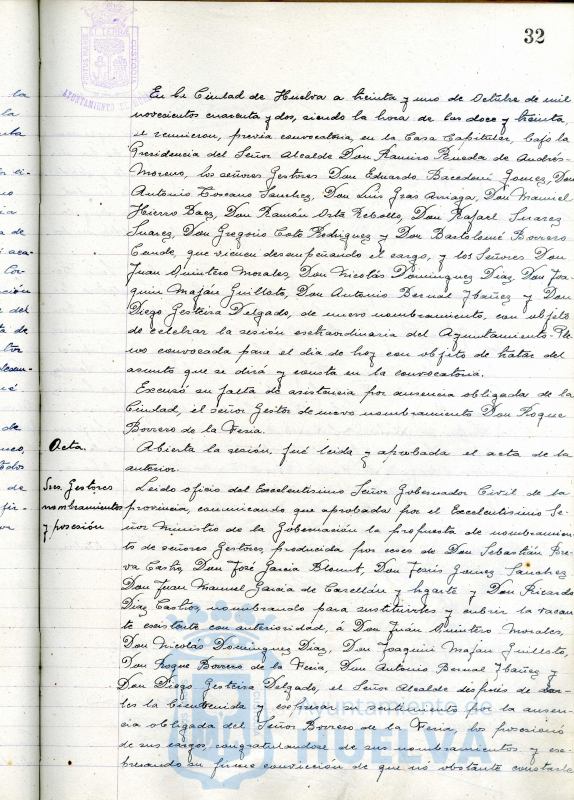 32
En la Ciudad de Huelva a treinta y uno de Octubre de mil
novecientos cuarenta y dos, siendo la hora de las doce y treinta,
se reunieron, previa convocatoria, en la Casa Capitular, bajo la
Presidencia del Señor Alcalde Don Ramiro Rueda de Andrés-
Moreno, los señores Gestores Don Eduardo Bacedoni Gomez, Don
Antonio Toscano Sanchez, Don Luis Gras Arriaga, Don Manuel
Hierro Baez, Don Ramón Orta Rebollo, Don Rafael Suarez
Suarez, Don Gregorio Coto Rodriguez y Don Bartolomé Borrero
Conde, que vienen desempeñando el cargo, y los Señores Don
Juan Quintero Morales, Don Nicolás Dominguez Diaz, Don Joa-
quin Mafán Guilloto, Don Antonio Bernal Ybañez y Don
Diego Gesteira Delgado, de nuevo nombramiento, con objeto
de celebrar la sesión extraordinaria del Ayuntamiento Ple-
no convocada para el dia de hoy con objeto de tratar del
asunto que se dirá y consta en la convocatoria.
Excusó su falta de asistencia por ausencia obligada de la
Ciudad, el señor Gestor de nuevo nombramiento Don Roque
Borrero de la Feria.
Acta.
Abierta la sesión, fué leida y aprobada el acta de la
anterior.
Sres. Gestores
nombramientos
y posesión
Leido oficio del Excelentisimo Señor Gobernador Civil de la
provincia, comunicando que aprobada por el Excelentisimo Se-
ñor Ministro de la Gobernación la propuesta de nombramien-
to de señores Gestores, producida por ceses de Don Sebastián Bre-
va Castro, Don José Garcia Blount, Don Jesús Gomez Sanchez
Don Juan Manuel Garcia de Casellán y Ugarte y Don Ricardo
Diaz Castro, nombrando para sustituirles y cubrir la vacan-
te existente con anterioridad, á Don Juan Quintero Morales,
Don Nicolás Dominguez Diaz, Don Joaquin Mafán Guilloto,
Don Roque Borrero de la Feria, Don Antonio Bernal Ybañez y
Don Diego Gesteira Delgado, el Señor Alcalde después de dar-
les la bienvenida y expresar su sentimiento por la ausen-
cia obligada del Señor Borrero de la Feria, los posesionó
de sus cargos, congratulandose de sus nombramientos y ex-
presando su firme convicción de que nó obstante constarle
HUELVA